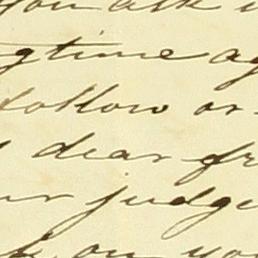 you ask
gtime ag
follow or
dear fr
ur judge
on you